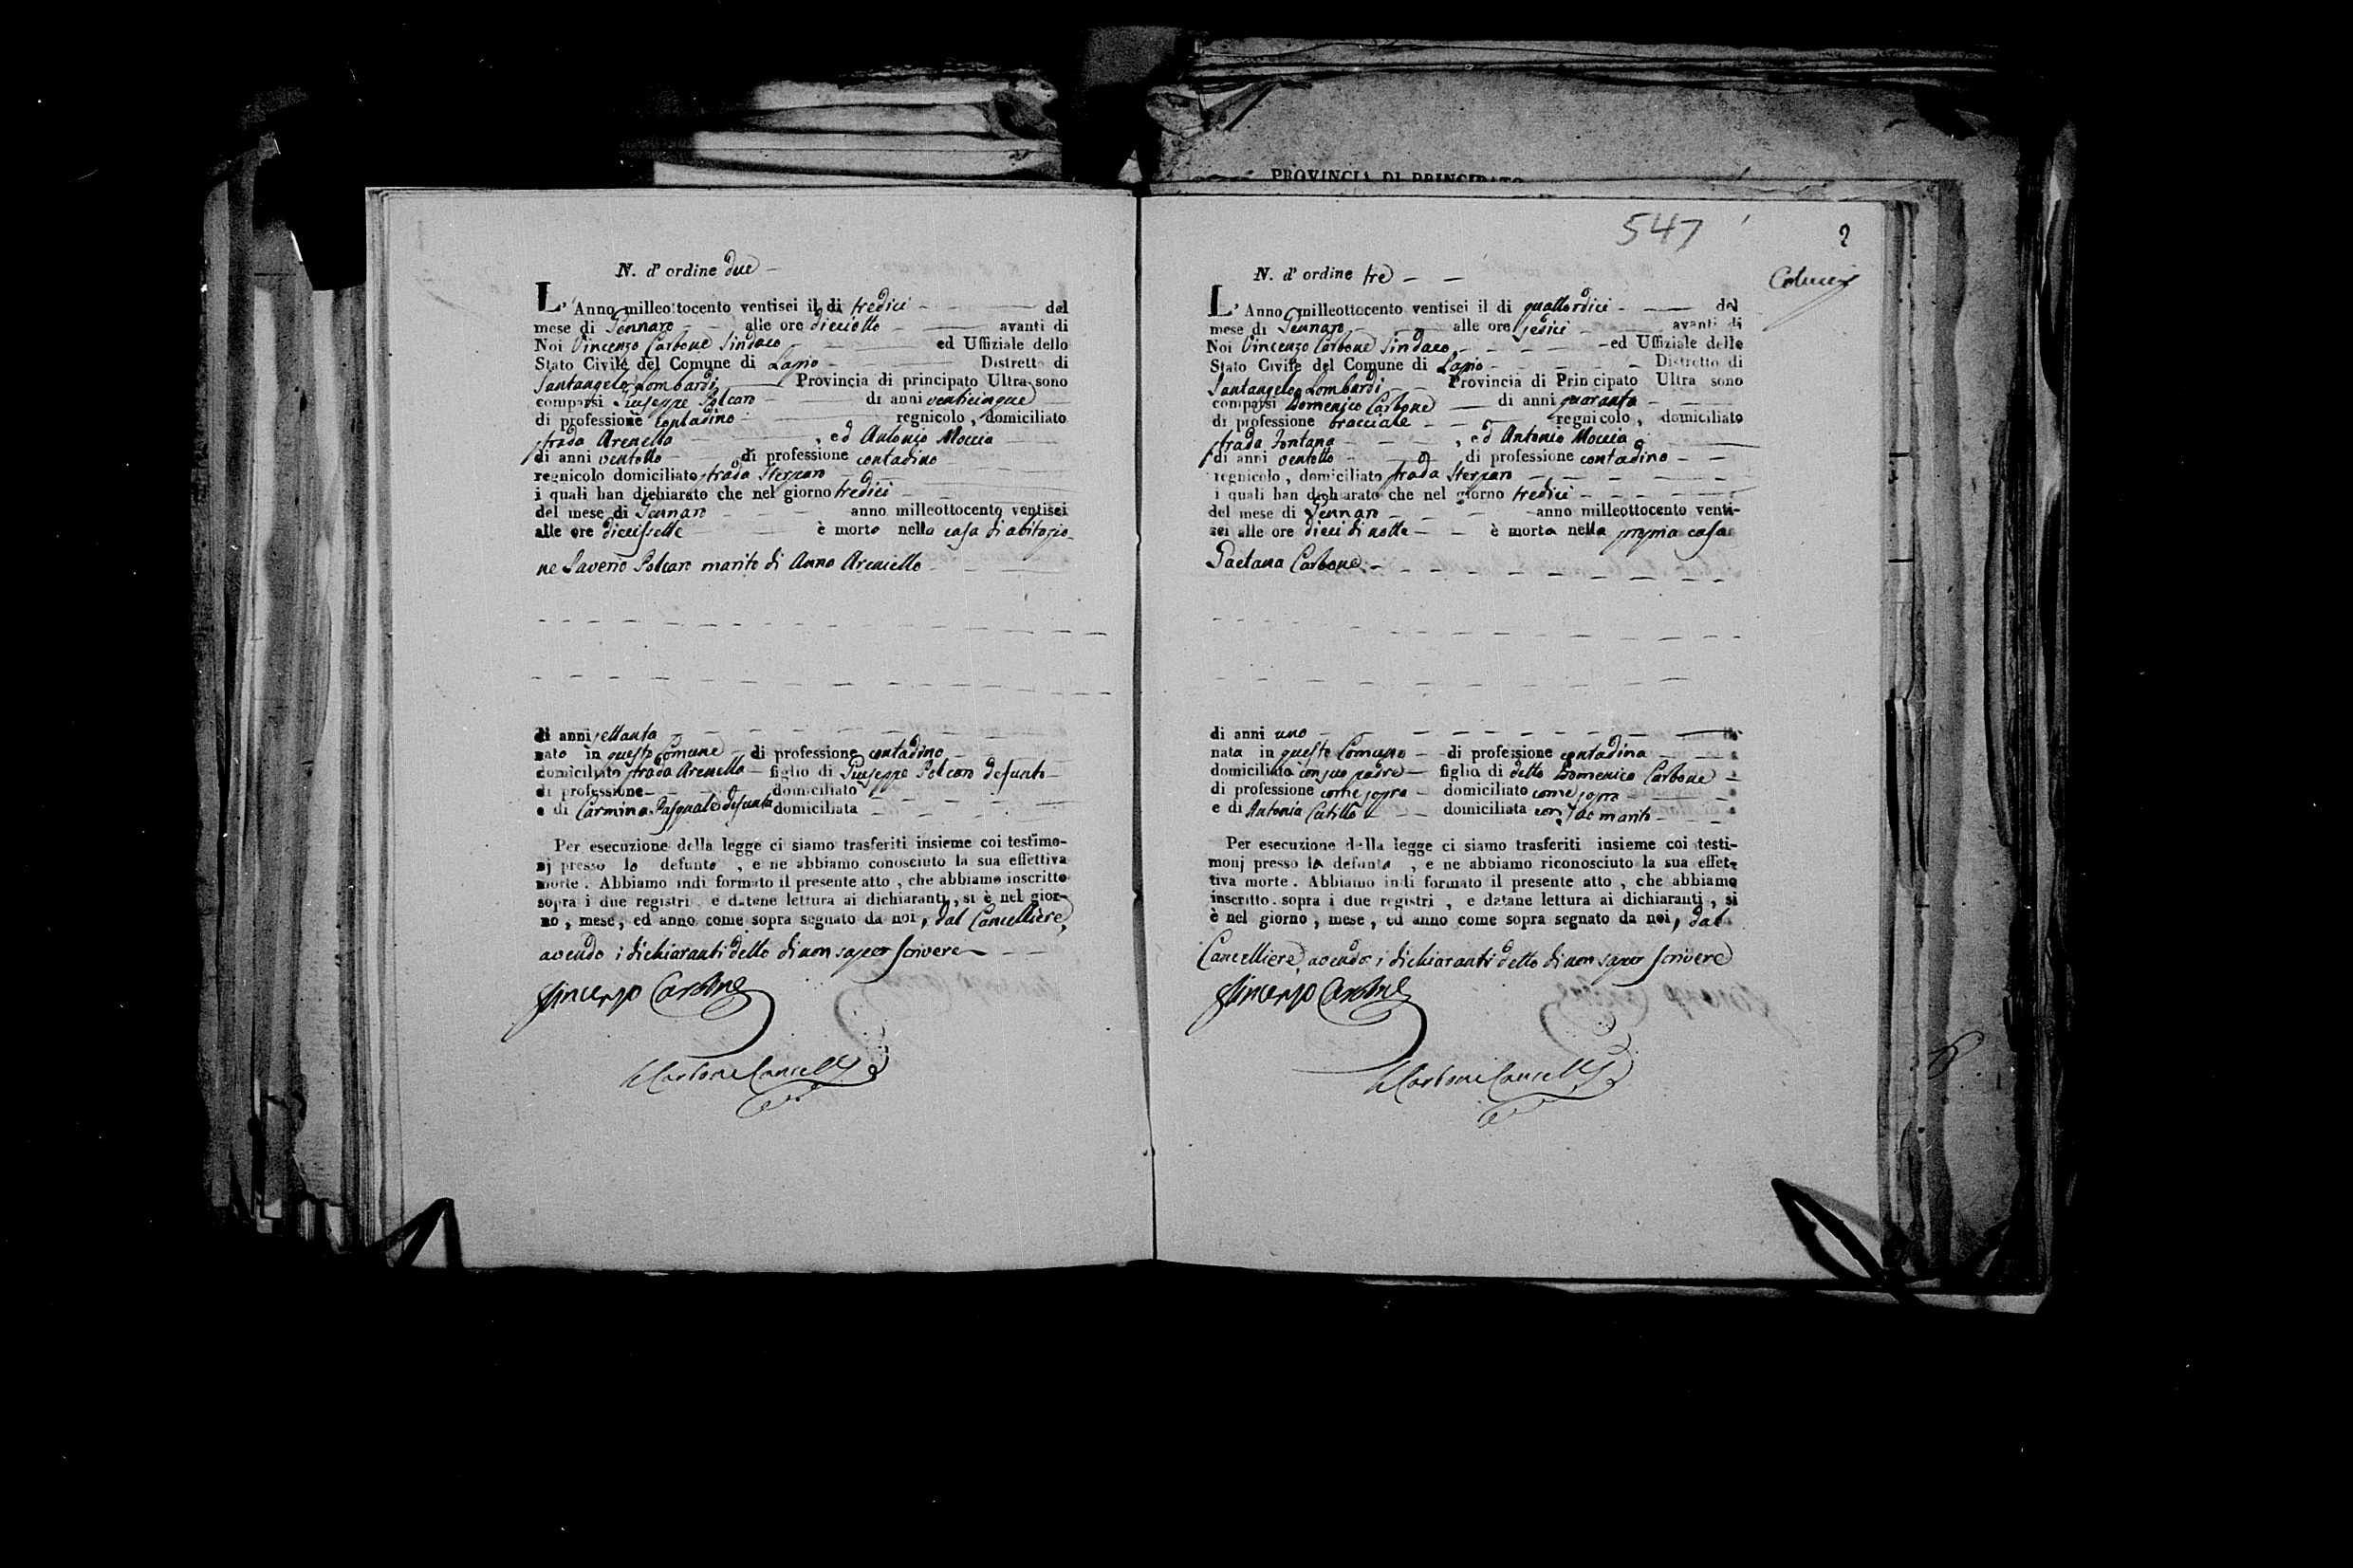 N. d' ordine due
L' Anno milleottocento ventisei il di tredici del
mese di Gennaro alle ore dieciotto avanti di
Noi Vincenzo Carbone Sindaco ed Uffiziale dello
Stato Civile del Comune di Lapio Distretto di
Santangelo Lombardi Provincia di principato Ultra sono
comparsi Giuseppe Polcaro di anni venticinque
di professione contadino regnicolo, domiciliato
strada Arenella, ed Antonio Moccia
di anni ventotto di professione contadino
regnicolo domiciliato strada Sterparo
i quali han dichiarato che nel giorno tredici
del mese di Gennaro anno milleottocento ventisei
alle ore diecissette è morto nella casa di abitazio-
ne Saverio Polcaro marito di Anna Areniello
di anni settanta
nato in questo Comune di professione contadino
domiciliato strada Arenella figlio di Giuseppe Polcaro defunto
di professione domiciliato
e di Carmina Pasquale defunta domiciliata
Per esecuzione della legge ci siamo trasferiti insieme coi testimo-
nj presso lo defunto, e ne abbiamo conosciuto la sua effettiva
morte. Abbiamo indi formato il presente atto, che abbiamo inscritto
sopra i due registri e datene lettura ai dichiaranti, si è nel gior-
no, mese, ed anno come sopra segnato da noi, dal Cancelliere,
avendo i dichiaranti detto di non saper scrivere
Vincenzo Carbone
Carbone Cancell.
PROVINCIA DI PRINCIPATO
547
2
N. d' ordine tre
L' Anno milleottocento ventisei il di quattordici del
mese di Gennaro alle ore sedici avanti di
Noi Vincenzo Carbone Sindaco ed Uffiziale dello
Stato Civile del Comune di Lapio Distretto di
Santangelo Lombardi Provincia di Principato Ultra sono
comparsi Domenico Carbone di anni quaranta
di professione bracciale regnicolo, domiciliato
strada Fontana, ed Antonio Moccia
di anni ventotto di professione contadino
regnicolo, domiciliato strada Sterparo
i quali han dichiarato che nel giorno tredici
del mese di Gennaro anno milleottocento venti-
sei alle ore dieci di notte è morta nella propria casa
Gaetana Carbone
di anni uno
nata in questo Comune di professione contadina
domiciliata con suo padre figlia di detto Domenico Carbone
di professione come sopra domiciliato come sopra
e di Antonia Cutillo domiciliata con suo marito
Per esecuzione della legge ci siamo trasferiti insieme coi testi-
monj presso la defunta, e ne abbiamo riconosciuto la sua effet-
tiva morte. Abbiamo indi formato il presente atto, che abbiamo
inscritto sopra i due registri, e datane lettura ai dichiaranti, si
è nel giorno, mese, ed anno come sopra segnato da noi, dal
Cancelliere, avendo i dichiaranti detto di non saper scrivere
Vincenzo Carbone
Carbone Cancell.